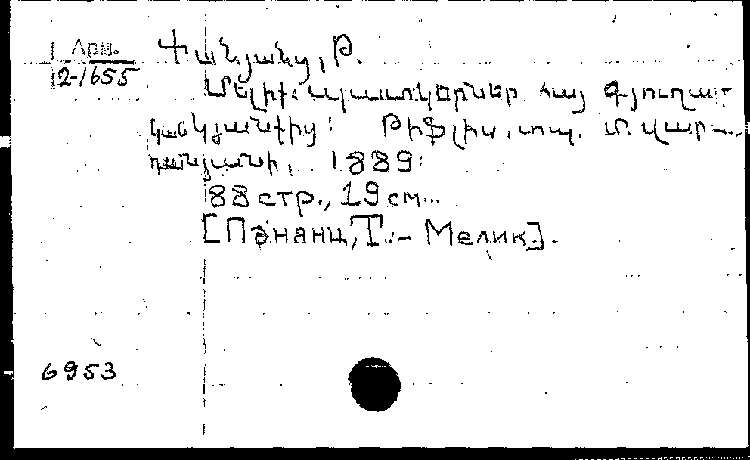 Арм.
2-1655
Փանյանց, Թ.
Մելիք: պատկերներ հայ գյուղա-
կան կյանքից: Թիֆլիս, տպ. Մ. Վար-
դանյանի, 1889.
88 стр., 19 см..
[Пананц, Т. – Мелик].
6953